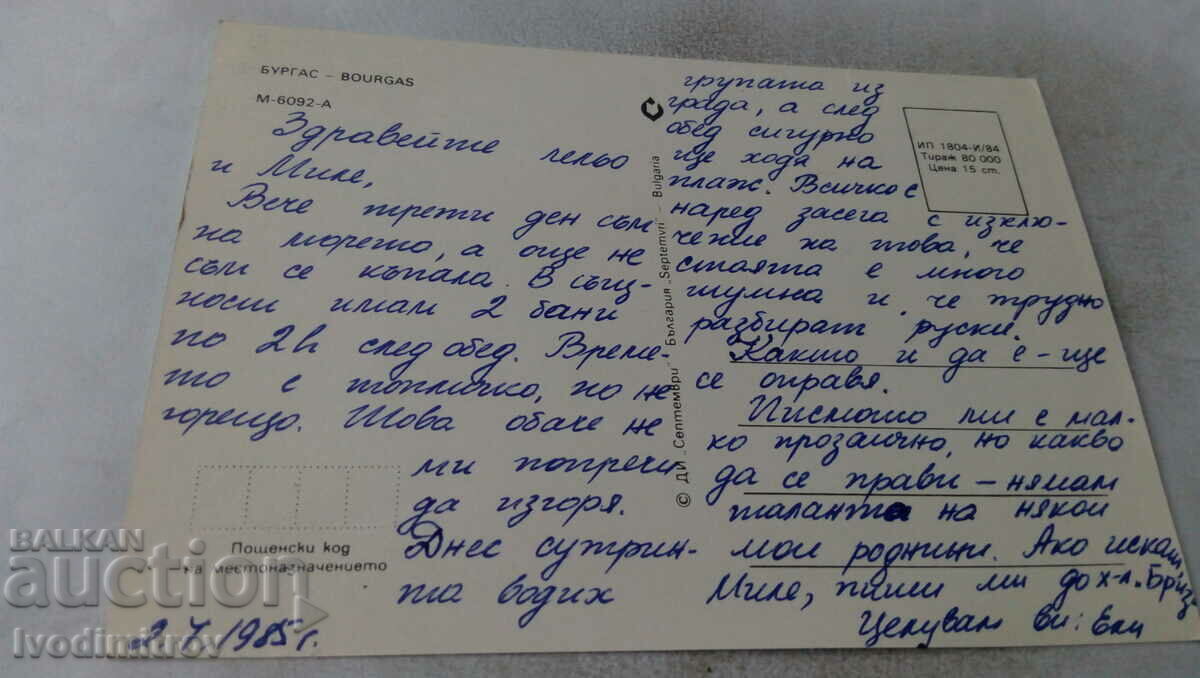 БУРГАС – BOURGAS
М-6092-А
Здравейте лельо
и Миле,
Вече трети ден съм
на морето, а още не
съм се къпала. В същ-
ност имам 2 бани
по 2h след обед. Време-
то е топличко, но не
горещо. Това обаче не
ми попречи
да изгоря.
Днес сутрин-
та водих
2.7.1985 г.
Пощенски код
на местоназначението
© ДИ „Септември" България „Septemvri" – Bulgaria
групата из
града, а след
обед сигурно
ще ходя на
плаж. Всичко е
наред засега с изклю-
чение на това, че
стаята е много
шумна и че трудно
разбират руски.
Както и да е – ще
се оправя.
Писмото ми е мал-
ко прозаично, но какво
да се прави – нямам
таланта на някои
мои роднини. Ако искаш
Миле, пиши ми до х-л „Бриз"
Целувам ви: Ели
ИП 1804-И/84
Тираж 80 000
Цена 15 ст.
BALKAN
auction
ivodimitrov